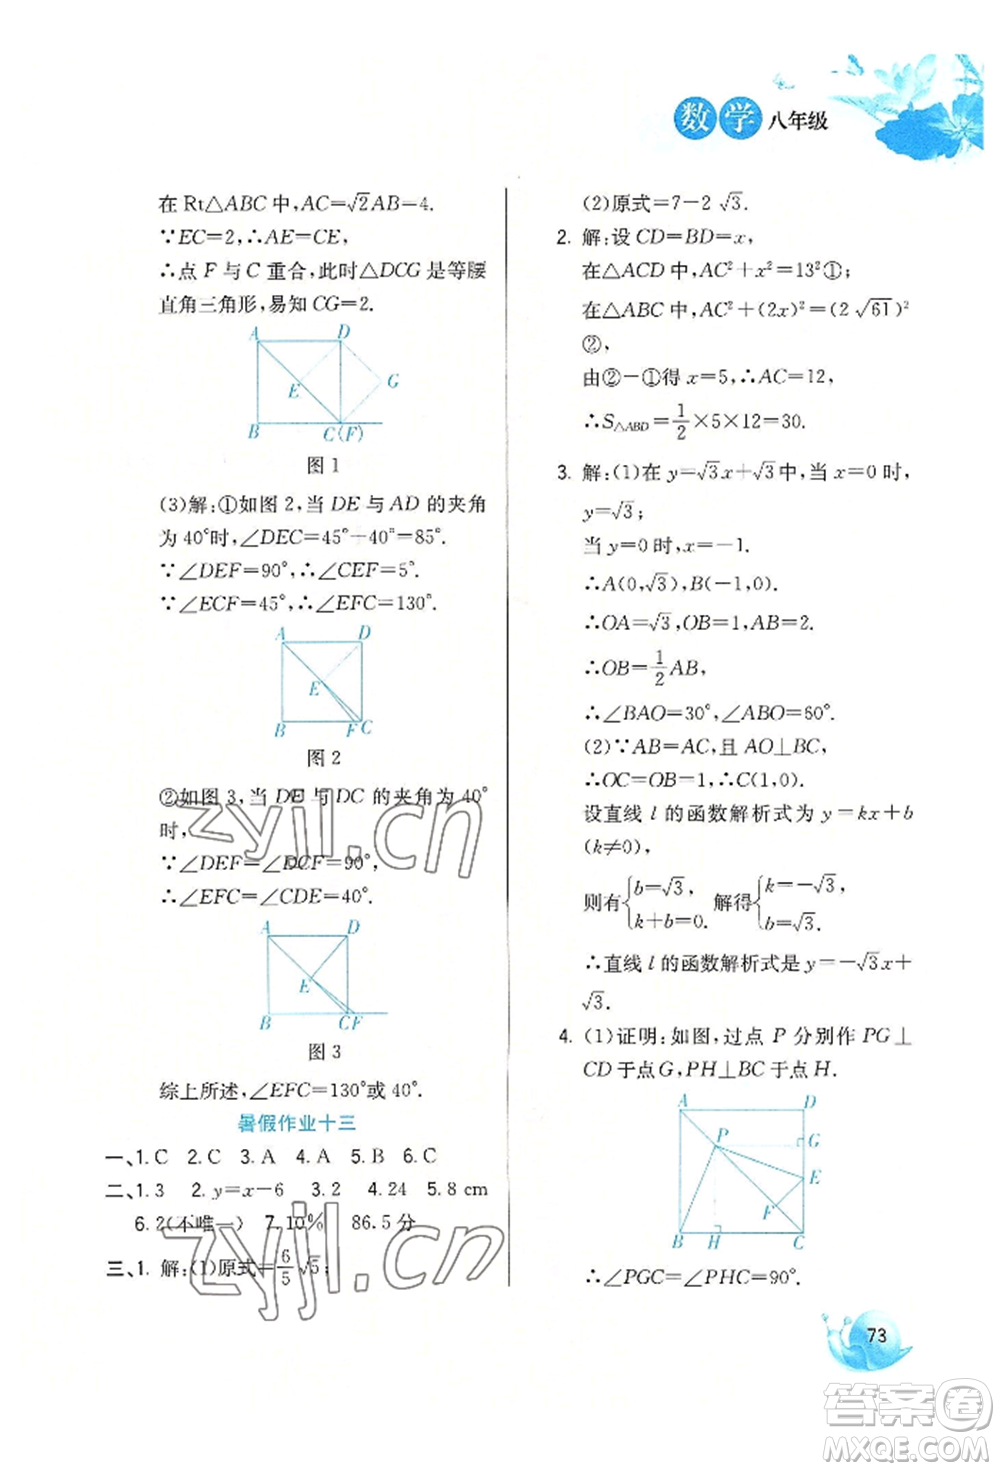 数学 八年级
在 Rt△ABC 中,AC=√2AB=4.
∵EC=2,∴AE=CE,
∴点 F 与 C 重合,此时△DCG 是等腰
直角三角形,易知 CG=2.
A D
E G
B C(F)
图 1
(3)解:①如图 2,当 DE 与 AD 的夹角
为 40°时,∠DEC=45°+40°=85°.
∵∠DEF=90°,∴∠CEF=5°.
∵∠ECF=45°,∴∠EFC=130°.
A D
E
B F C
图 2
②如图 3,当 DE 与 DC 的夹角为 40°
时,
∵∠DEF=∠DCF=90°,
∴∠EFC=∠CDE=40°.
A D
E
B C F
图 3
综上所述,∠EFC=130°或 40°.
暑假作业十三
一、1.C 2.C 3.A 4.A 5.B 6.C
二、1.3 2.y=x-6 3.2 4.24 5.8 cm
6.2(不唯一) 7.10% 86.5 分
三、1. 解:(1)原式=6/5√5;
(2)原式=7-2√3.
2. 解:设 CD=BD=x,
在△ACD 中,AC²+x²=13²①;
在△ABC 中,AC²+(2x)²=(2√61)²
②,
由②-①得 x=5,∴AC=12,
∴S△ABD=1/2×5×12=30.
3. 解:(1)在 y=√3x+√3中,当 x=0 时,
y=√3;
当 y=0 时,x=-1.
∴A(0,√3),B(-1,0).
∴OA=√3,OB=1,AB=2.
∴OB=1/2AB,
∴∠BAO=30°,∠ABO=60°.
(2)∵AB=AC,且 AO⊥BC,
∴OC=OB=1,∴C(1,0).
设直线 l 的函数解析式为 y=kx+b
(k≠0),
则有{b=√3, k+b=0. 解得{k=-√3, b=√3.
∴直线 l 的函数解析式是 y=-√3x+
√3.
4. (1)证明:如图,过点 P 分别作 PG⊥
CD于点G,PH⊥BC于点H.
A D
P G
E
F
B H C
∴∠PGC=∠PHC=90°.
73
zyjl.cn
zyjl.cn
答案圈
MXQE.COM